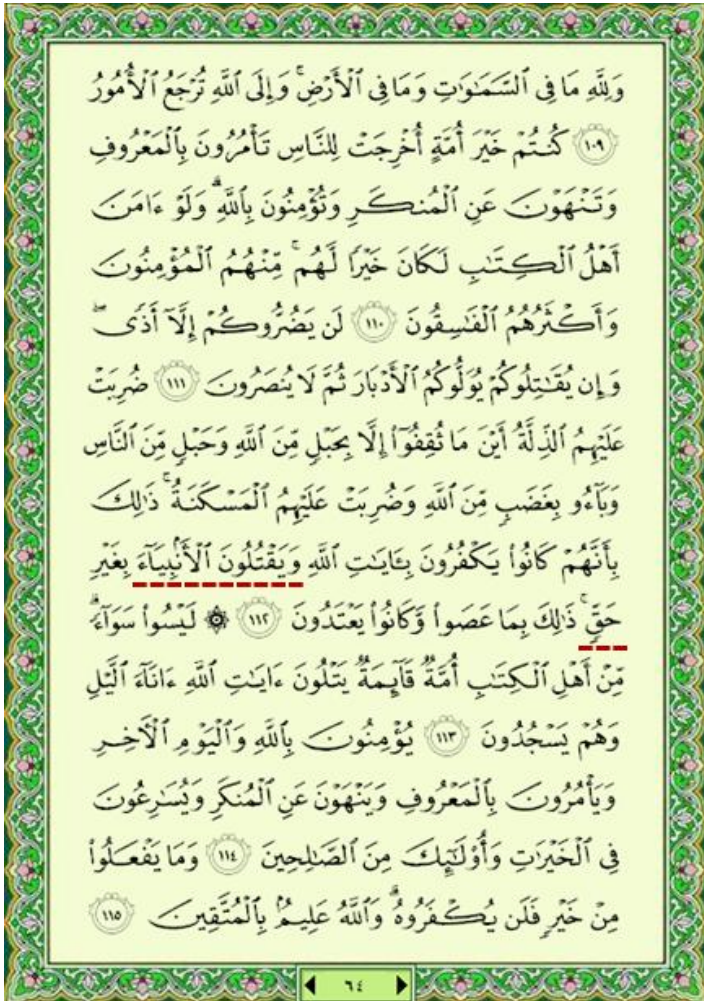 وَلِلَّهِ مَا فِى ٱلسَّمَـٰوَٰتِ وَمَا فِى ٱلْأَرْضِ ۚ وَإِلَى ٱللَّهِ تُرْجَعُ ٱلْأُمُورُ
١٠٩ كُنتُمْ خَيْرَ أُمَّةٍ أُخْرِجَتْ لِلنَّاسِ تَأْمُرُونَ بِٱلْمَعْرُوفِ
وَتَنْهَوْنَ عَنِ ٱلْمُنكَرِ وَتُؤْمِنُونَ بِٱللَّهِ ۗ وَلَوْ ءَامَنَ
أَهْلُ ٱلْكِتَـٰبِ لَكَانَ خَيْرًا لَّهُم ۚ مِّنْهُمُ ٱلْمُؤْمِنُونَ
وَأَكْثَرُهُمُ ٱلْفَـٰسِقُونَ ١١٠ لَن يَضُرُّوكُمْ إِلَّآ أَذًى ۖ
وَإِن يُقَـٰتِلُوكُمْ يُوَلُّوكُمُ ٱلْأَدْبَارَ ثُمَّ لَا يُنصَرُونَ ١١١ ضُرِبَتْ
عَلَيْهِمُ ٱلذِّلَّةُ أَيْنَ مَا ثُقِفُوٓا۟ إِلَّا بِحَبْلٍ مِّنَ ٱللَّهِ وَحَبْلٍ مِّنَ ٱلنَّاسِ
وَبَآءُو بِغَضَبٍ مِّنَ ٱللَّهِ وَضُرِبَتْ عَلَيْهِمُ ٱلْمَسْكَنَةُ ۚ ذَٰلِكَ
بِأَنَّهُمْ كَانُوا۟ يَكْفُرُونَ بِـَٔايَـٰتِ ٱللَّهِ وَيَقْتُلُونَ ٱلْأَنۢبِيَآءَ بِغَيْرِ
حَقٍّ ۚ ذَٰلِكَ بِمَا عَصَوا۟ وَّكَانُوا۟ يَعْتَدُونَ ١١٢ ۞ لَيْسُوا۟ سَوَآءً ۗ
مِّنْ أَهْلِ ٱلْكِتَـٰبِ أُمَّةٌ قَآئِمَةٌ يَتْلُونَ ءَايَـٰتِ ٱللَّهِ ءَانَآءَ ٱلَّيْلِ
وَهُمْ يَسْجُدُونَ ١١٣ يُؤْمِنُونَ بِٱللَّهِ وَٱلْيَوْمِ ٱلْـَٔاخِرِ
وَيَأْمُرُونَ بِٱلْمَعْرُوفِ وَيَنْهَوْنَ عَنِ ٱلْمُنكَرِ وَيُسَـٰرِعُونَ
فِى ٱلْخَيْرَٰتِ وَأُو۟لَـٰٓئِكَ مِنَ ٱلصَّـٰلِحِينَ ١١٤ وَمَا يَفْعَلُوا۟
مِنْ خَيْرٍ فَلَن يُكْفَرُوهُ ۗ وَٱللَّهُ عَلِيمٌۢ بِٱلْمُتَّقِينَ ١١٥
٦٤